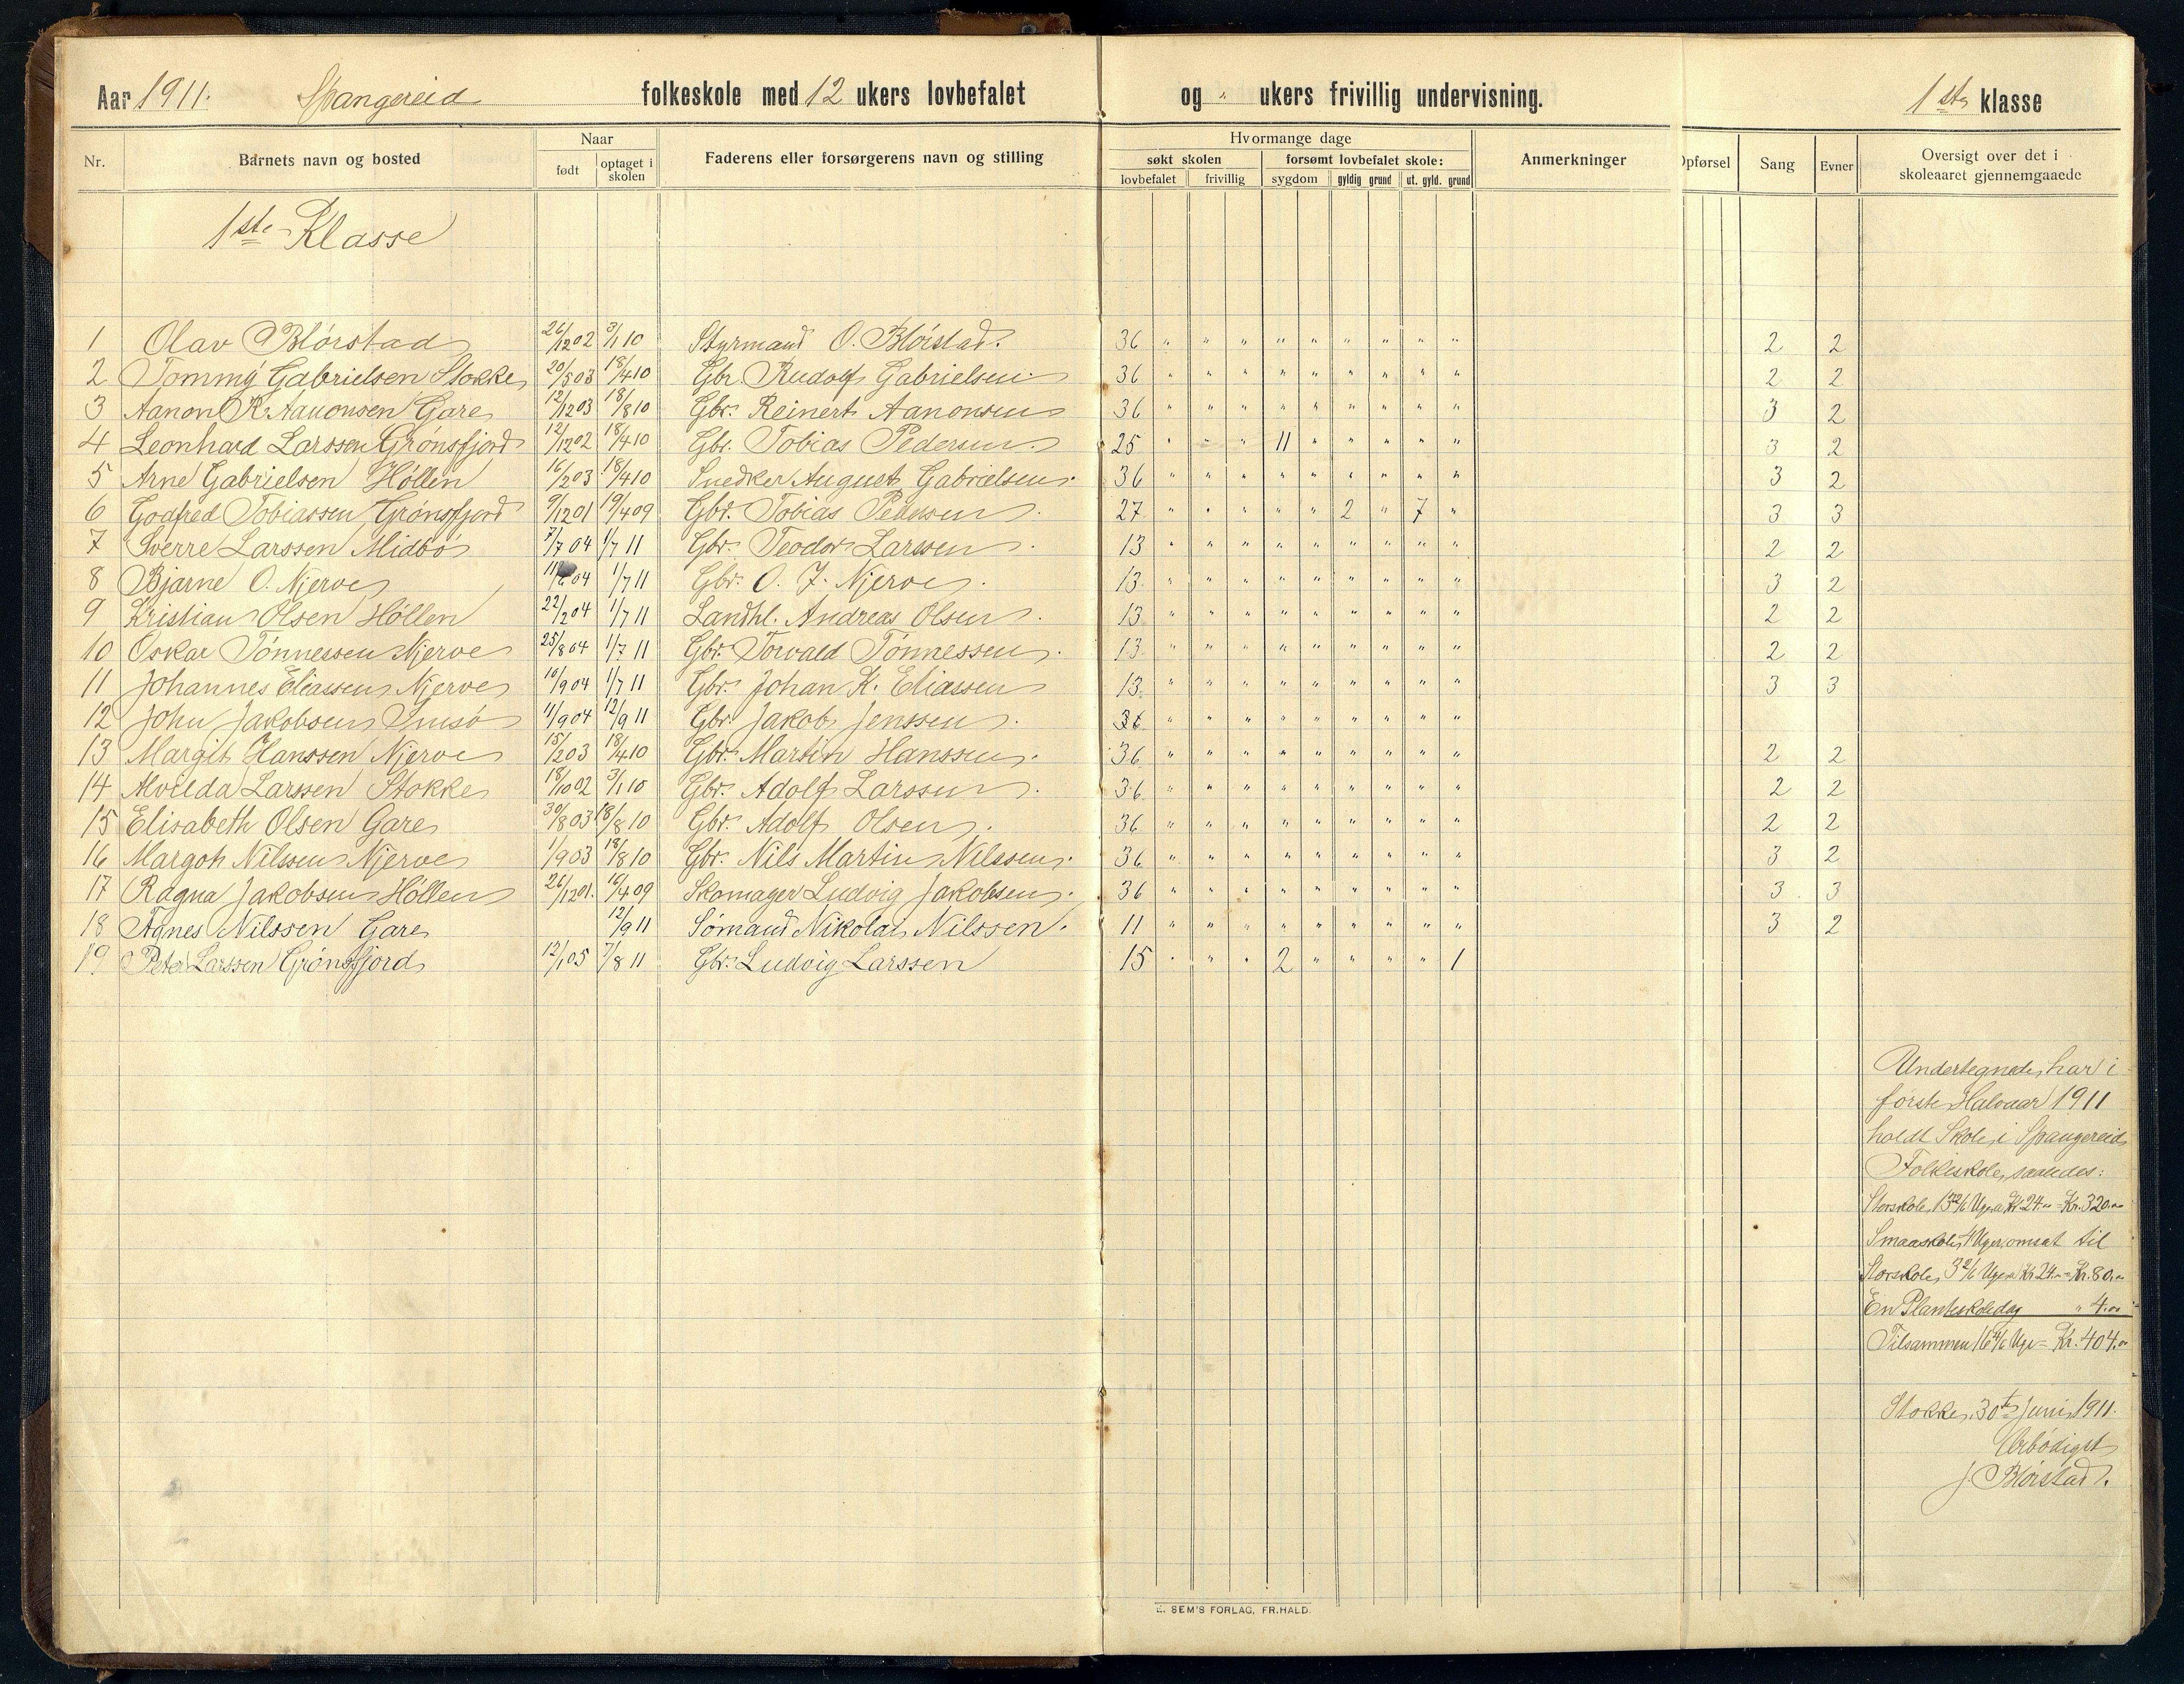 Aar 1911. Spangereid folkeskole med 12 ukers lovbefalet og " ukers frivillig undervisning. 1ste klasse
Nr. Barnets navn og bosted Naar Faderens eller forsørgerens navn og stilling Hvormange dage Anmerkninger Opførsel Sang Evner Oversigt over det i skoleaaret gjennemgaaede
født optaget i skolen søkt skolen forsømt lovbefalet skole:
lovbefalet frivillig sygdom gyldig grund ut. gyld. grund
1ste Klasse
1 Olav Blørstad 26/12 02 3/1 10 Styrmand O. Blørstad. 36 " " " " " " " " " 2 2
2 Tommy Gabrielsen Stokke 20/5 03 18/4 10 Gbr. Rudolf Gabrielsen. 36 " " " " " " " " " 2 2
3 Aanon R. Aanonsen Gare 12/12 03 18/8 10 Gbr. Reinert Aanonsen 36 " " " " " " " " " 3 2
4 Leonhard Larssen Grønsfjord 12/12 02 18/4 10 Gbr. Tobias Pedersen. 25 " " " 11 " " " " " 3 2
5 Arne Gabrielsen Høllen 16/2 03 18/4 10 Snedker August Gabrielsen. 36 " " " " " " " " " 3 2
6 Godfred Tobiassen Grønsfjord 9/12 01 19/4 09 Gbr. Tobias Pedersen. 27 " " " " " 2 " 7 " 3 3
7 Sverre Larssen Midbø 7/7 04 1/7 11 Gbr. Teodor Larssen. 13 " " " " " " " " " 2 2
8 Bjarne O. Njerve 04 1/7 11 Gbr. O. J. Njerve. 13 " " " " " " " " " 3 2
9 Kristian Olsen Høllen 22/2 04 1/7 11 Landhl. Andreas Olsen. 13 " " " " " " " " " 2 2
10 Oskar Tønnessen Njerve 25/8 04 1/7 11 Gbr. Torvald Tønnessen. 13 " " " " " " " " " 2 2
11 Johannes Eliassen Njerve 10/9 04 1/7 11 Gbr. Johan K. Eliassen 13 " " " " " " " " " 3 3
12 John Jakobsen 11/9 04 12/9 11 Gbr. Jakob Jenssen. " " " " " " " " "
13 Margit Hanssen Njerve 15/2 03 18/4 10 Gbr. Martin Hanssen. 36 " " " " " " " " " 2 2
14 Alvilda Larssen Stokke 18/10 02 3/1 10 Gbr. Adolf Larssen. 36 " " " " " " " " " 2 2
15 Elisabeth Olsen Gare 30/8 03 18/8 10 Gbr. Adolf Olsen. 36 " " " " " " " " " 2 2
16 Margot Nilssen Njerve 1/9 03 18/8 10 Gbr. Nils Martin Nilssen. 36 " " " " " " " " " 3 2
17 Ragna Jakobsen Høllen 26/12 01. 19/4 09 Skomager Ludvig Jakobsen. 36 " " " " " " " " " 3 3
18 Agnes Nilssen Gare 12/9 11 Sømand Nikolai Nilssen. 11 " " " " " " " " " 3 2
19 Peter Larssen Grønsfjord 12/1 05 7/8 11 Gbr. Ludvig Larssen 15 " " " 2 " " " " 1
Undertegnede har i
første Halvaar 1911
holdt Skole i Spangereid
Folkeskole saaledes:
Storskole 13 2/6 Uger a Kr. 24.00 = Kr. 320.00
Smaaskole 4 Uger, omsat til
Storskole, 3 2/6 Uger a Kr 24.00 = Kr. 80.00
En Planteskoledag " 4.00
Tilsammen 16 4/6 Uge = Kr. 404.00
Stokke, 30te Juni 1911.
Ærbødigst
J. Blørstad.
E. SEM'S FORLAG, FR.HALD.